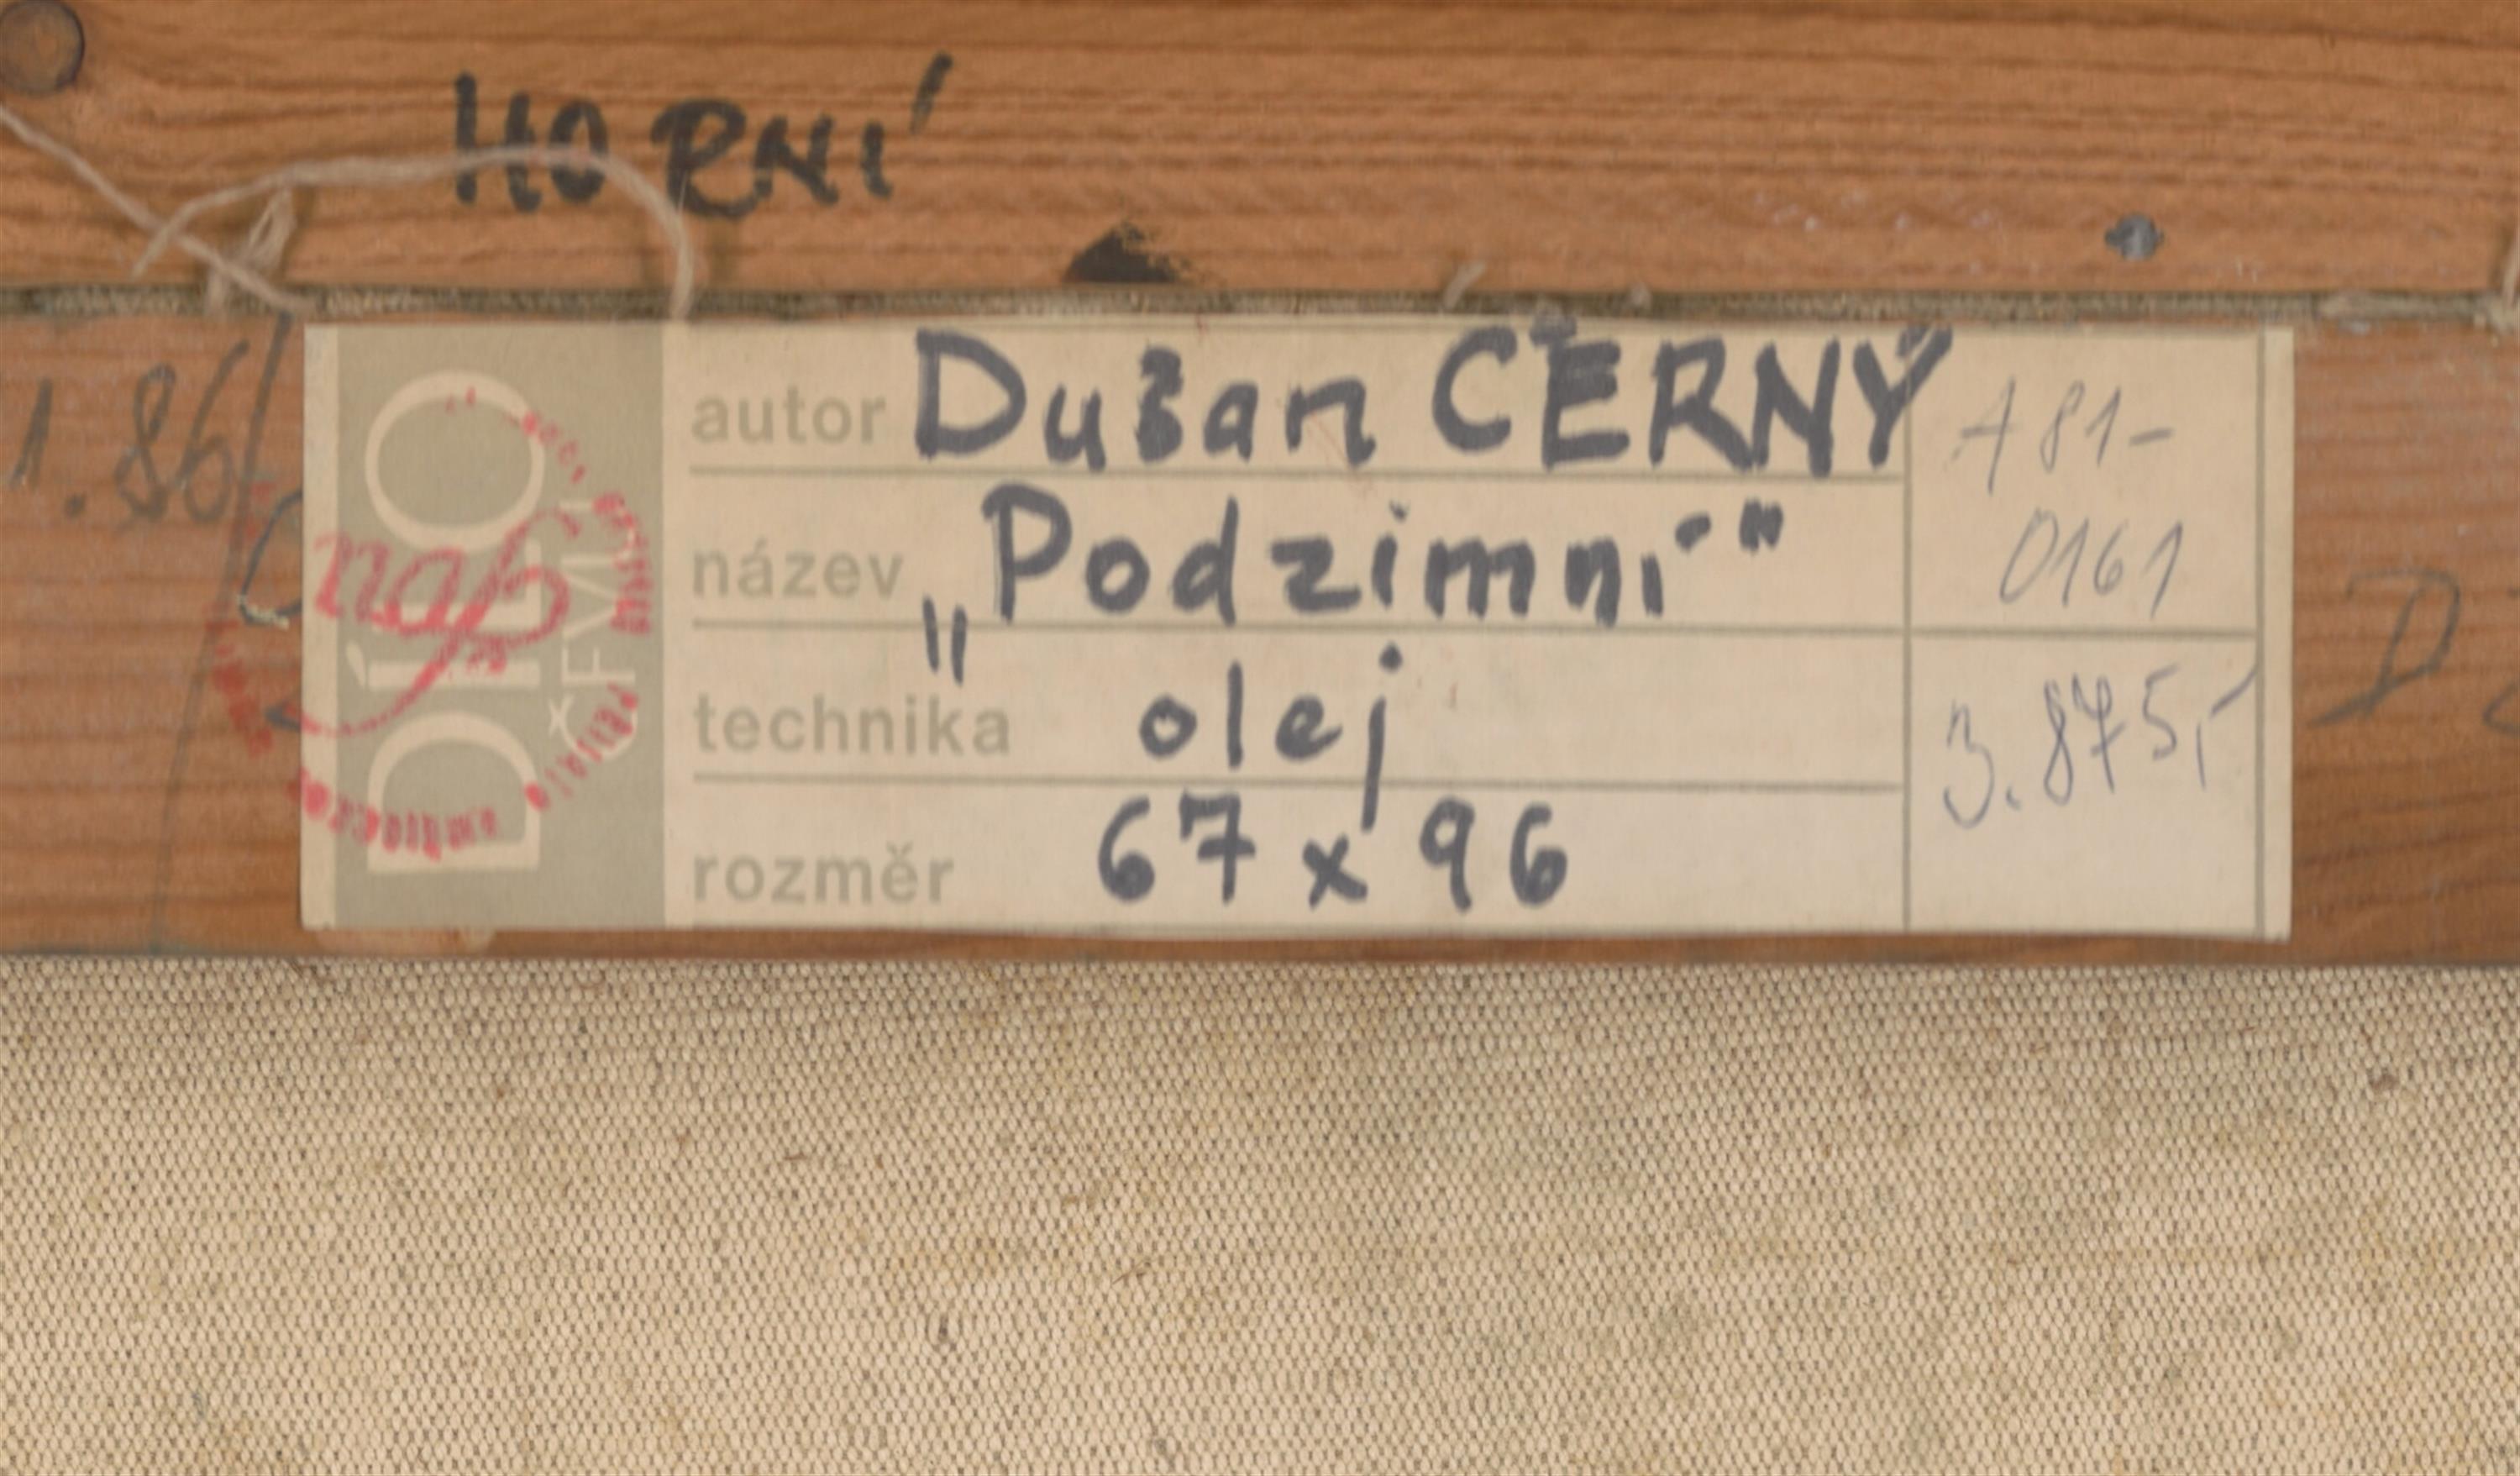 HORNÍ
1.86
DÍLO
ČFVU
autor Dušan ČERNÝ
název „Podzimní"
technika olej
rozměr 67 x 96
A 81-
0161
3.875,-
D